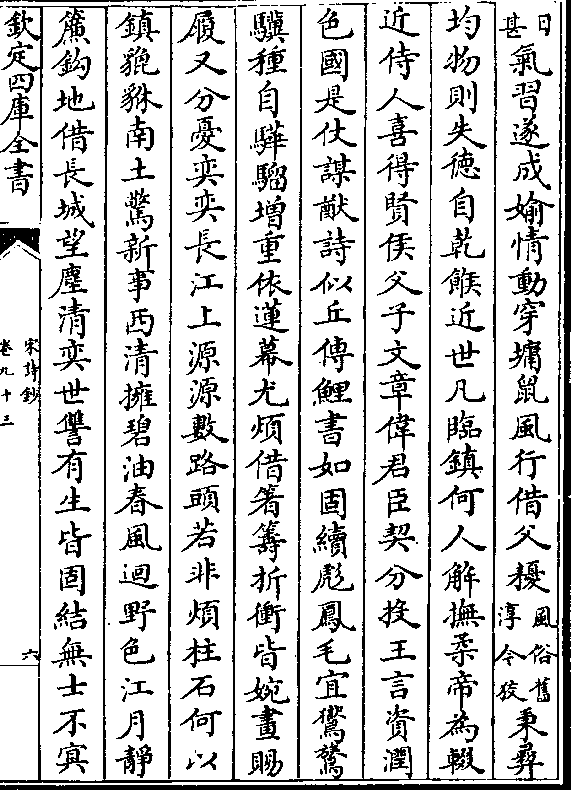 日甚氣習遂成婾情動穿墉鼠風行借父耰風俗舊淳今狡秉彝
均物則失德自乾餱近世凡臨鎮何人解撫柔帝為輟
近侍人喜得賢侯父子文章偉君臣契分投王言資潤
色國是仗謀猷詩似丘傳鯉書如固續彪鳳毛宜鸑鷟
驥種自驊騮增重依蓮幕尤煩借箸籌折衝皆婉畫賜
履又分憂奕奕長江上源源數路頭若非煩柱石何以
鎮貔貅南土驚新事西清擁碧油春風迴野色江月靜
簾鈎地借長城望塵清奕世讐有生皆固結無士不寘
欽定四庫全書
宋詩鈔
卷九十三
六